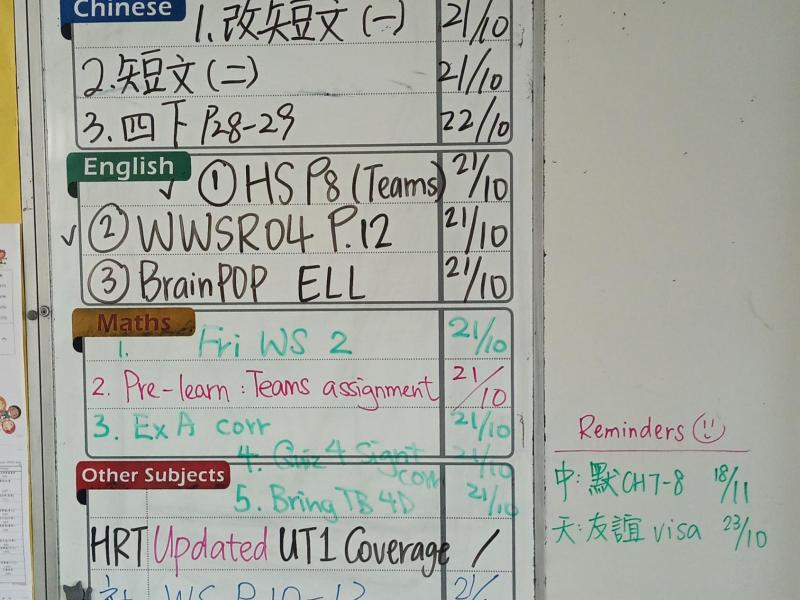 Chinese
1. 改短文(一) 21/10
2. 短文(二) 21/10
3. 四下 P28-29 22/10
English
① HS P8 (Teams) 21/10
② WWSR04 P.12 21/10
③ BrainPOP ELL 21/10
Maths
1. Fri WS 2 21/10
2. Pre-learn : Teams assignment 21/10
3. Ex A corr 21/10
4. Quiz 4 Sign+ corr 21/10
Other Subjects
5. Bring TB 4D 21/10
HRT Updated UT1 Coverage /
WS P.10-12
Reminders
中: 默 CH7-8 18/11
天: 友誼 visa 23/10